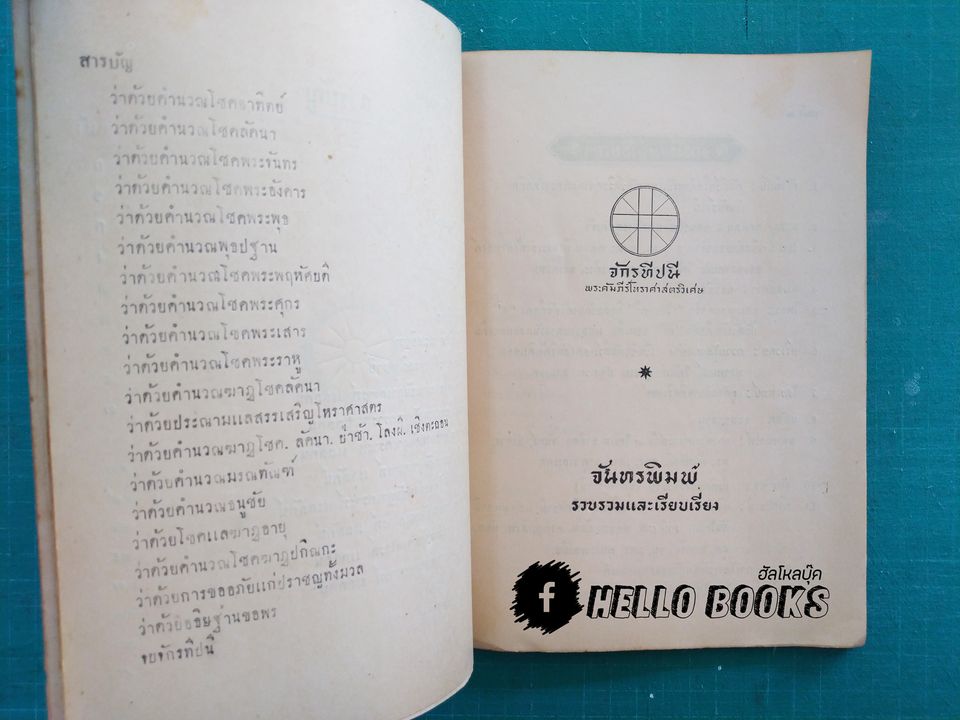 สารบัญ
ว่าด้วยคำนวณโชคอาทิตย์
ว่าด้วยคำนวณโชคลัคนา
ว่าด้วยคำนวณโชคพระจันทร
ว่าด้วยคำนวณโชคพระอังคาร
ว่าด้วยคำนวณโชคพระพุธ
ว่าด้วยคำนวณพุธปฐาน
ว่าด้วยคำนวณโชคพระพฤหัศบดี
ว่าด้วยคำนวณโชคพระศุกร
ว่าด้วยคำนวณโชคพระเสาร
ว่าด้วยคำนวณโชคพระราหู
ว่าด้วยคำนวณฆาฏโชคลัคนา
ว่าด้วยประณามแลสรรเสริญโหราศาสตร
ว่าด้วยคำนวณฆาฏโชค. ลัคนา. ย่ำซ้ำ. โลงผี. เชิงตะกอน
ว่าด้วยคำนวณมรณทัณฑ์
ว่าด้วยคำนวณธนูชัย
ว่าด้วยโชคแลฆาฏอายุ
ว่าด้วยคำนวณโชคฆาฏปกิณกะ
ว่าด้วยการขออภัยแก่ปราชญ์ทั้งมวล
ว่าด้วยอธิษฐานขอพร
จบจักรทีปนี
จักรทีปนี
พระคัมภีร์โหราศาสตรวิเศษ
จันทรพิมพ์
รวบรวมและเรียบเรียง
ฮัลโหลบุ๊ค
f HELLO BOOKS